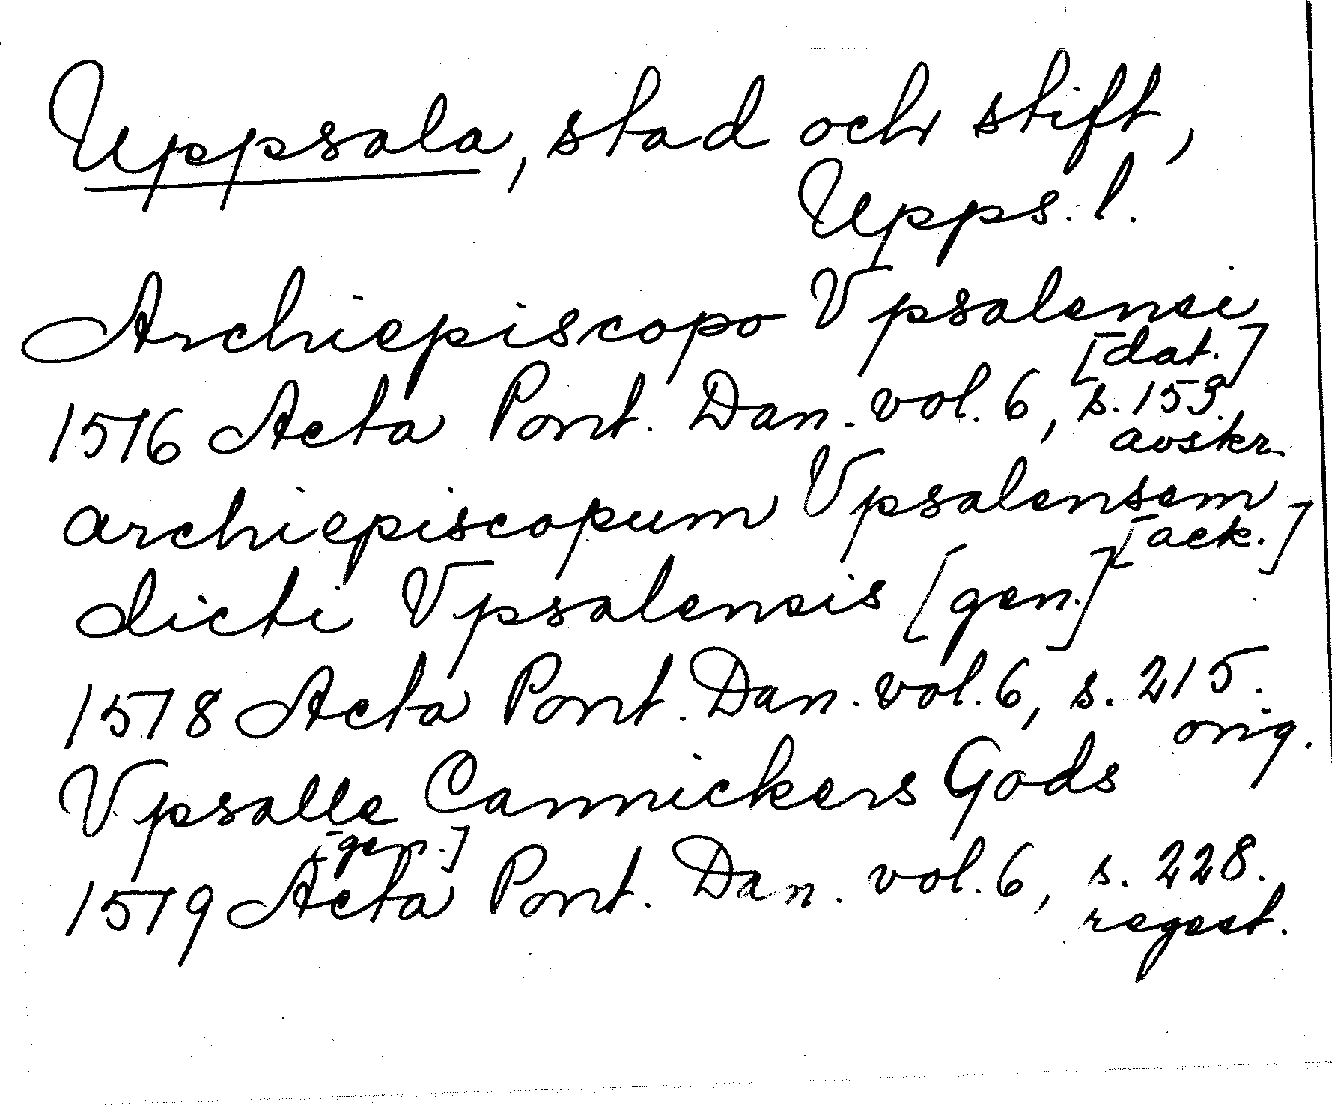 Uppsala, stad och stift,
Upps. l.
Archiepiscopo Vpsalensi
[dat.]
1516 Acta Pont. Dan. vol. 6, s. 159.
avskr.
archiepiscopum Vpsalensem
[ack.]
dicti Vpsalensis [gen.]
1518 Acta Pont. Dan. vol. 6, s. 215.
orig.
Vpsalle Cannickers Gods
[gen.]
1519 Acta Pont. Dan. vol. 6, s. 228.
regest.